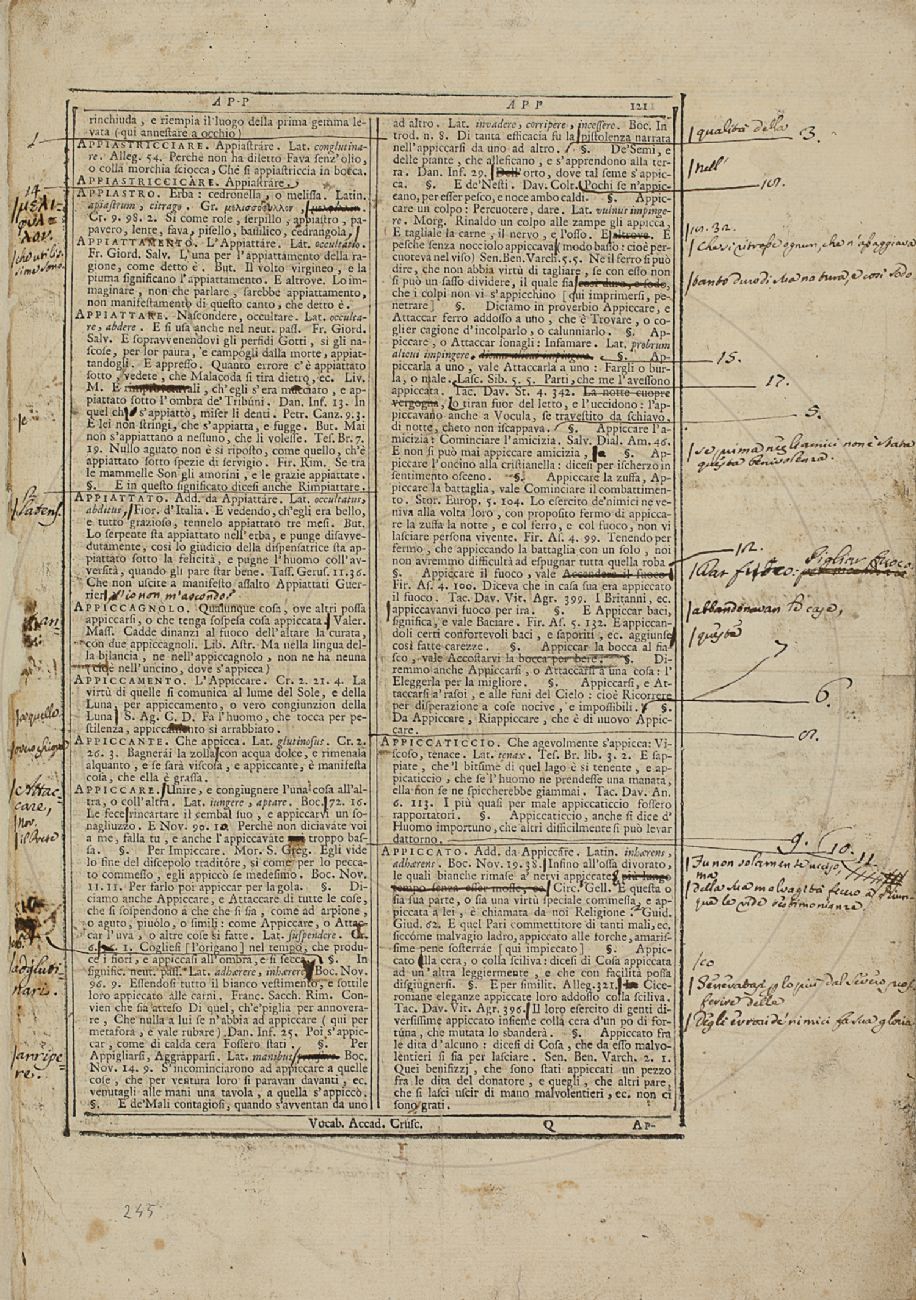 APP
APP 121
rinchiuda, e riempia il luogo della prima gemma le-
vata (qui annestare a occhio)
APPIASTRICCIARE. Appiastráre. Lat. conglutina-
re. Alleg. 54. Perchè non ha diletto Fava senz'olio,
o colla morchia sciocca, Che si appiastriccia in bocca.
APPIASTRICCICARE. Appiastráre.
APPIASTRO. Erba: cedronella, o melissa. Latin.
apiastrum, citrago. Gr.
Cr. 9. 98. 2. Sì come rose, serpillo, appiastro, pa-
pavero, lente, fava, pisello, basilico, cedrangola,
APPIATTAMENTO. L'Appiattáre. Lat. occultatio.
Fr. Giord. Salv. L'una per l'appiattamento della ra-
gione, come detto è. But. Il volto virgineo, e la
piuma significano l'appiattamento. E altrove. Lo im-
maginare, non che parlare, sarebbe appiattamento,
non manifestamento di questo canto, che detto è.
APPIATTARE. Nascondere, occultare. Lat. occulta-
re, abdere. E si usa anche nel neut. pass. Fr. Giord.
Salv. E sopravvenendovi gli perfidi Gotti, si gli na-
scose, per lor paura, e campogli dalla morte, appiat-
tandogli. E appresso. Quanto errore c'è appiattato
sotto, vedete, che Malacoda si tira dietro, ec. Liv.
M. E ch'egli s'era muciato, e ap-
piattato sotto l'ombra de'Tribúni. Dan. Inf. 13. In
quel che s'appiattò, miser li denti. Petr. Canz. 9. 3.
E lei non stringi, che s'appiatta, e fugge. But. Mai
non s'appiattano a nessuno, che li volesse. Tes. Br. 7.
19. Nullo aguato non è sì riposto, come quello, ch'è
appiattato sotto spezie di servigio. Fir. Rim. Se tra
le mammelle Son gli amorini, e le grazie appiattate.
§. E in questo significato dicesi anche Rimpiattare.
APPIATTATO. Add. da Appiattáre. Lat. occultatus,
abditus, Fior. d'Italia. E vedendo, ch'egli era bello,
e tutto grazioso, tennelo appiattato tre mesi. But.
Lo serpente sta appiattato nell'erba, e punge disavve-
dutamente, così lo giudicio della dispensatrice sta ap-
piattato sotto la felicità, e pugne l'huomo coll'av-
versità, quando gli pare star bene. Tass. Gerus. 11. 36.
Che non uscite a manifesto assalto Appiattati Guer-
rier, s'io non m'ascondo?
APPICCAGNOLO. Qualunque cosa, ove altri possa
appiccarsi, o che tenga sospesa cosa appiccata. Valer.
Mass. Cadde dinanzi al fuoco dell'altare la curata,
con due appiccagnoli. Lib. Astr. Ma nella lingua del-
la bilancia, ne nell'appiccagnolo, non ne ha neuna
(cioè nell'uncino, dove s'appicca)
APPICCAMENTO. L'Appiccare. Cr. 2. 21. 4. La
virtù di quelle si comunica al lume del Sole, e della
Luna, per appiccamento, o vero congiunzion della
Luna S. Ag. C. D. Fa l'huomo, che tocca per pe-
stilenza, appiccamento si arrabbiato.
APPICCANTE. Che appicca. Lat. glutinosus. Cr. 2.
26. 3. Bagnerái la zolla con acqua dolce, e rimenala
alquanto, e se sarà viscosa, e appiccante, è manifesta
cosa, che ella è grassa.
APPICCARE. Unire, e congiugnere l'una cosa all'al-
tra, o coll'altra. Lat. iungere, aptare. Boc. 72. 16.
Le fece rincartare il cembal suo, e appiccarvi un so-
nagliuzzo. E Nov. 90. 10. Perchè non diciavate voi
a me, falla tu, e anche l'appiccavate troppo bas-
sa. §. Per Impiccare. Mor. S. Greg. Egli vide
lo fine del discepolo traditóre, sì come per lo pecca-
to commesso, egli appiccò se medesimo. Boc. Nov.
11. 11. Per farlo poi appiccar per la gola. §. Di-
ciamo anche Appiccare, e Attaccare di tutte le cose,
che si sospendono a che che si sia, come ad arpione,
o aguto, piuolo, o simili: come Appiccare, o Attac-
car l'uva, o altre cose sì fatte. Lat. suspendere. Cr.
6. 1. Cogliesi [l'origano] nel tempo, che produ-
ce i fiori, e appiccasi all'ombra, e si secca. §. In
signific. neut. pass. Lat. adhærere, inhærere. Boc. Nov.
96. 9. Essendosi tutto il bianco vestimento, e sottile
loro appiccato alle carni. Franc. Sacch. Rim. Con-
vien che sia atteso Di quel, ch'e'piglia per annovera-
re, Che nulla a lui se n'abbia ad appiccare (qui per
metafora, e vale rubare) Dan. Inf. 25. Poi s'appic-
car, come di calda cera Fossero stati. §. Per
Appigliarsi, Aggrápparsi. Lat. manibus Boc.
Nov. 14. 9. S'incominciarono ad appiccare a quelle
cose, che per ventura loro si paravan davanti, ec.
venutagli alle mani una tavola, a quella s'appiccò.
§. E de'Mali contagiosi, quando s'avventan da uno
ad altro. Lat. invadere, corripere, incessere. Boc. In
trod. n. 8. Di tanta efficacia fu la pistolenza narrata
nell'appiccarsi da uno ad altro. §. De'Semi, e
delle piante, che alleficano, e s'apprendono alla ter-
ra. Dan. Inf. 29. Dell'orto, dove tal seme s'appic-
ca. §. E de'Nesti. Dav. Colt. Pochi se n'appic-
cano, per esser pesco, e noce ambo caldi. §. Appic-
care un colpo: Percuotere, dare. Lat. vulnus impinge-
re. Morg. Rinaldo un colpo alle zampe gli appicca,
E tagliale la carne, il nervo, e l'osso. E altrove. E
pesche senza nocciolo appiccava (modo basso: cioè per-
cuoteva nel viso) Sen. Ben. Varch. 5. 5. Ne il ferro si può
dire, che non abbia virtù di tagliare, se con esso non
si può un sasso dividere, il quale sia così duro, e sodo,
che i colpi non vi s'appicchino [qui imprimersi, pe-
netrare] §. Diciamo in proverbio Appiccare, e
Attaccar ferro addosso a uno, che è Trovare, o co-
glier cagione d'incolparlo, o calunniarlo. §. Ap-
piccare, o Attaccar sonagli: Infamare. Lat. probrum
alicui impingere. §. Ap-
piccarla a uno, vale Attaccarla a uno: Fargli o bur-
la, o male. Lasc. Sib. 5. 5. Parti, che me l'avessono
appiccata. Tac. Dav. St. 4. 342. La notte cuopre
vergogna, Lo tiran fuor del letto, e l'uccidono: l'ap-
piccavano anche a Vocula, se travestito da schiavo,
di notte, cheto non iscappava. §. Appiccare l'a-
micizia: Cominciare l'amicizia. Salv. Dial. Am. 46.
E non si può mai appiccare amicizia, §. Ap-
piccare l'oncino alla cristianella: dicesi per ischerzo in
sentimento osceno. §. Appiccar la zuffa, Ap-
piccare la battaglia, vale Cominciare il combattimen-
to. Stor. Europ. 5. 104. Lo esercito de'nimici ne ve-
niva alla volta loro, con proposito fermo di appicca-
re la zuffa la notte, e col ferro, e col fuoco, non vi
lasciare persona vivente. Fir. As. 4. 99. Tenendo per
fermo, che appiccando la battaglia con un solo, noi
non avremmo difficultà ad espugnar tutta quella roba
§. Appiccare il fuoco, vale Accendere il fuoco
Fir. As. 4. 100. Diceva che in casa sua era appiccato
il fuoco. Tac. Dav. Vit. Agr. 399. I Britanni, ec.
appiccavanvi fuoco per ira. §. E Appiccar baci,
significa, e vale Baciare. Fir. As. 5. 132. E appiccan-
doli certi confortevoli baci, e saporiti, ec. aggiunse
così fatte carezze. §. Appiccar la bocca al fia-
sco, vale Accostarvi la bocca per bere. §. Di-
remmo anche Appiccarsi, o Attaccarsi a una cosa: l'
Eleggerla per la migliore. §. Appiccarsi, e At-
taccarsi a'rasoi, e alle funi del Cielo: cioè Ricorrere
per disperazione a cose nocive, e impossibili. §.
Da Appiccare, Riappiccare, che è di nuovo Appic-
care.
APPICCATICCIO. Che agevolmente s'appicca: Vi-
scoso, tenace. Lat. tenax. Tes. Br. lib. 3. 2. E sap-
piate, che'l bitume di quel lago è sì tenente, e ap-
picaticcio, che se'l huomo ne prendesse una manata,
ella non se ne spiccherebbe giammai. Tac. Dav. An.
6. 113. I più quasi per male appiccaticcio fossero
rapportatori. §. Appiccaticcio, anche si dice d'
Huomo importuno, che altri difficilmente si può levar
dattorno.
APPICCATO. Add. da Appiccáre. Latin. inhærens,
adhærens. Boc. Nov. 19. 38. Insino all'ossa divorato,
le quali bianche rimase a'nervi appiccate, più lungo
tempo senza esser mosse, ec. Circ. Gell. E questa o
sia sua parte, o sia una virtù speciale commessa, e ap-
piccata a lei, è chiamata da noi Religione. Guid.
Giud. 62. E quel Pari commettitore di tanti mali, ec.
siccóme malvagio ladro, appiccato alle forche, amaris-
sime pene sosterráe [qui impiccato] §. Appic-
cato colla cera, o colla sciliva: dicesi di Cosa appiccata
ad un'altra leggiermente, e che con facilità possa
disgiugnersi. §. E per similit. Alleg. 321. Cice-
roniane eleganze appiccate loro addosso colla sciliva.
Tac. Dav. Vit. Agr. 396. Il loro esercito di genti di-
versissime appiccato insieme colla cera d'un pò di for-
túna, che mutata lo sbanderà. §. Appiccato fra
le dita d'alcuno: dicesi di Cosa, che da esso malvo-
lentieri si sia per lasciare. Sen. Ben. Varch. 2. 1.
Quei benifizzj, che sono stati appiccati un pezzo
fra le dita del donatore, e quegli, che altri pare,
che si lasci uscir di mano malvolentieri, ec. non ci
sono grati.
Vocab. Accad. Crusc. Q Ap-
qualità della
3.
nell'
10.
15.
17.
5.
se prima negli amici non è stata
questa benivolenza.
10.
abbandonavan le case,
7
6.
9. 10. 11
14.
adglutinaris.
arripere.
245